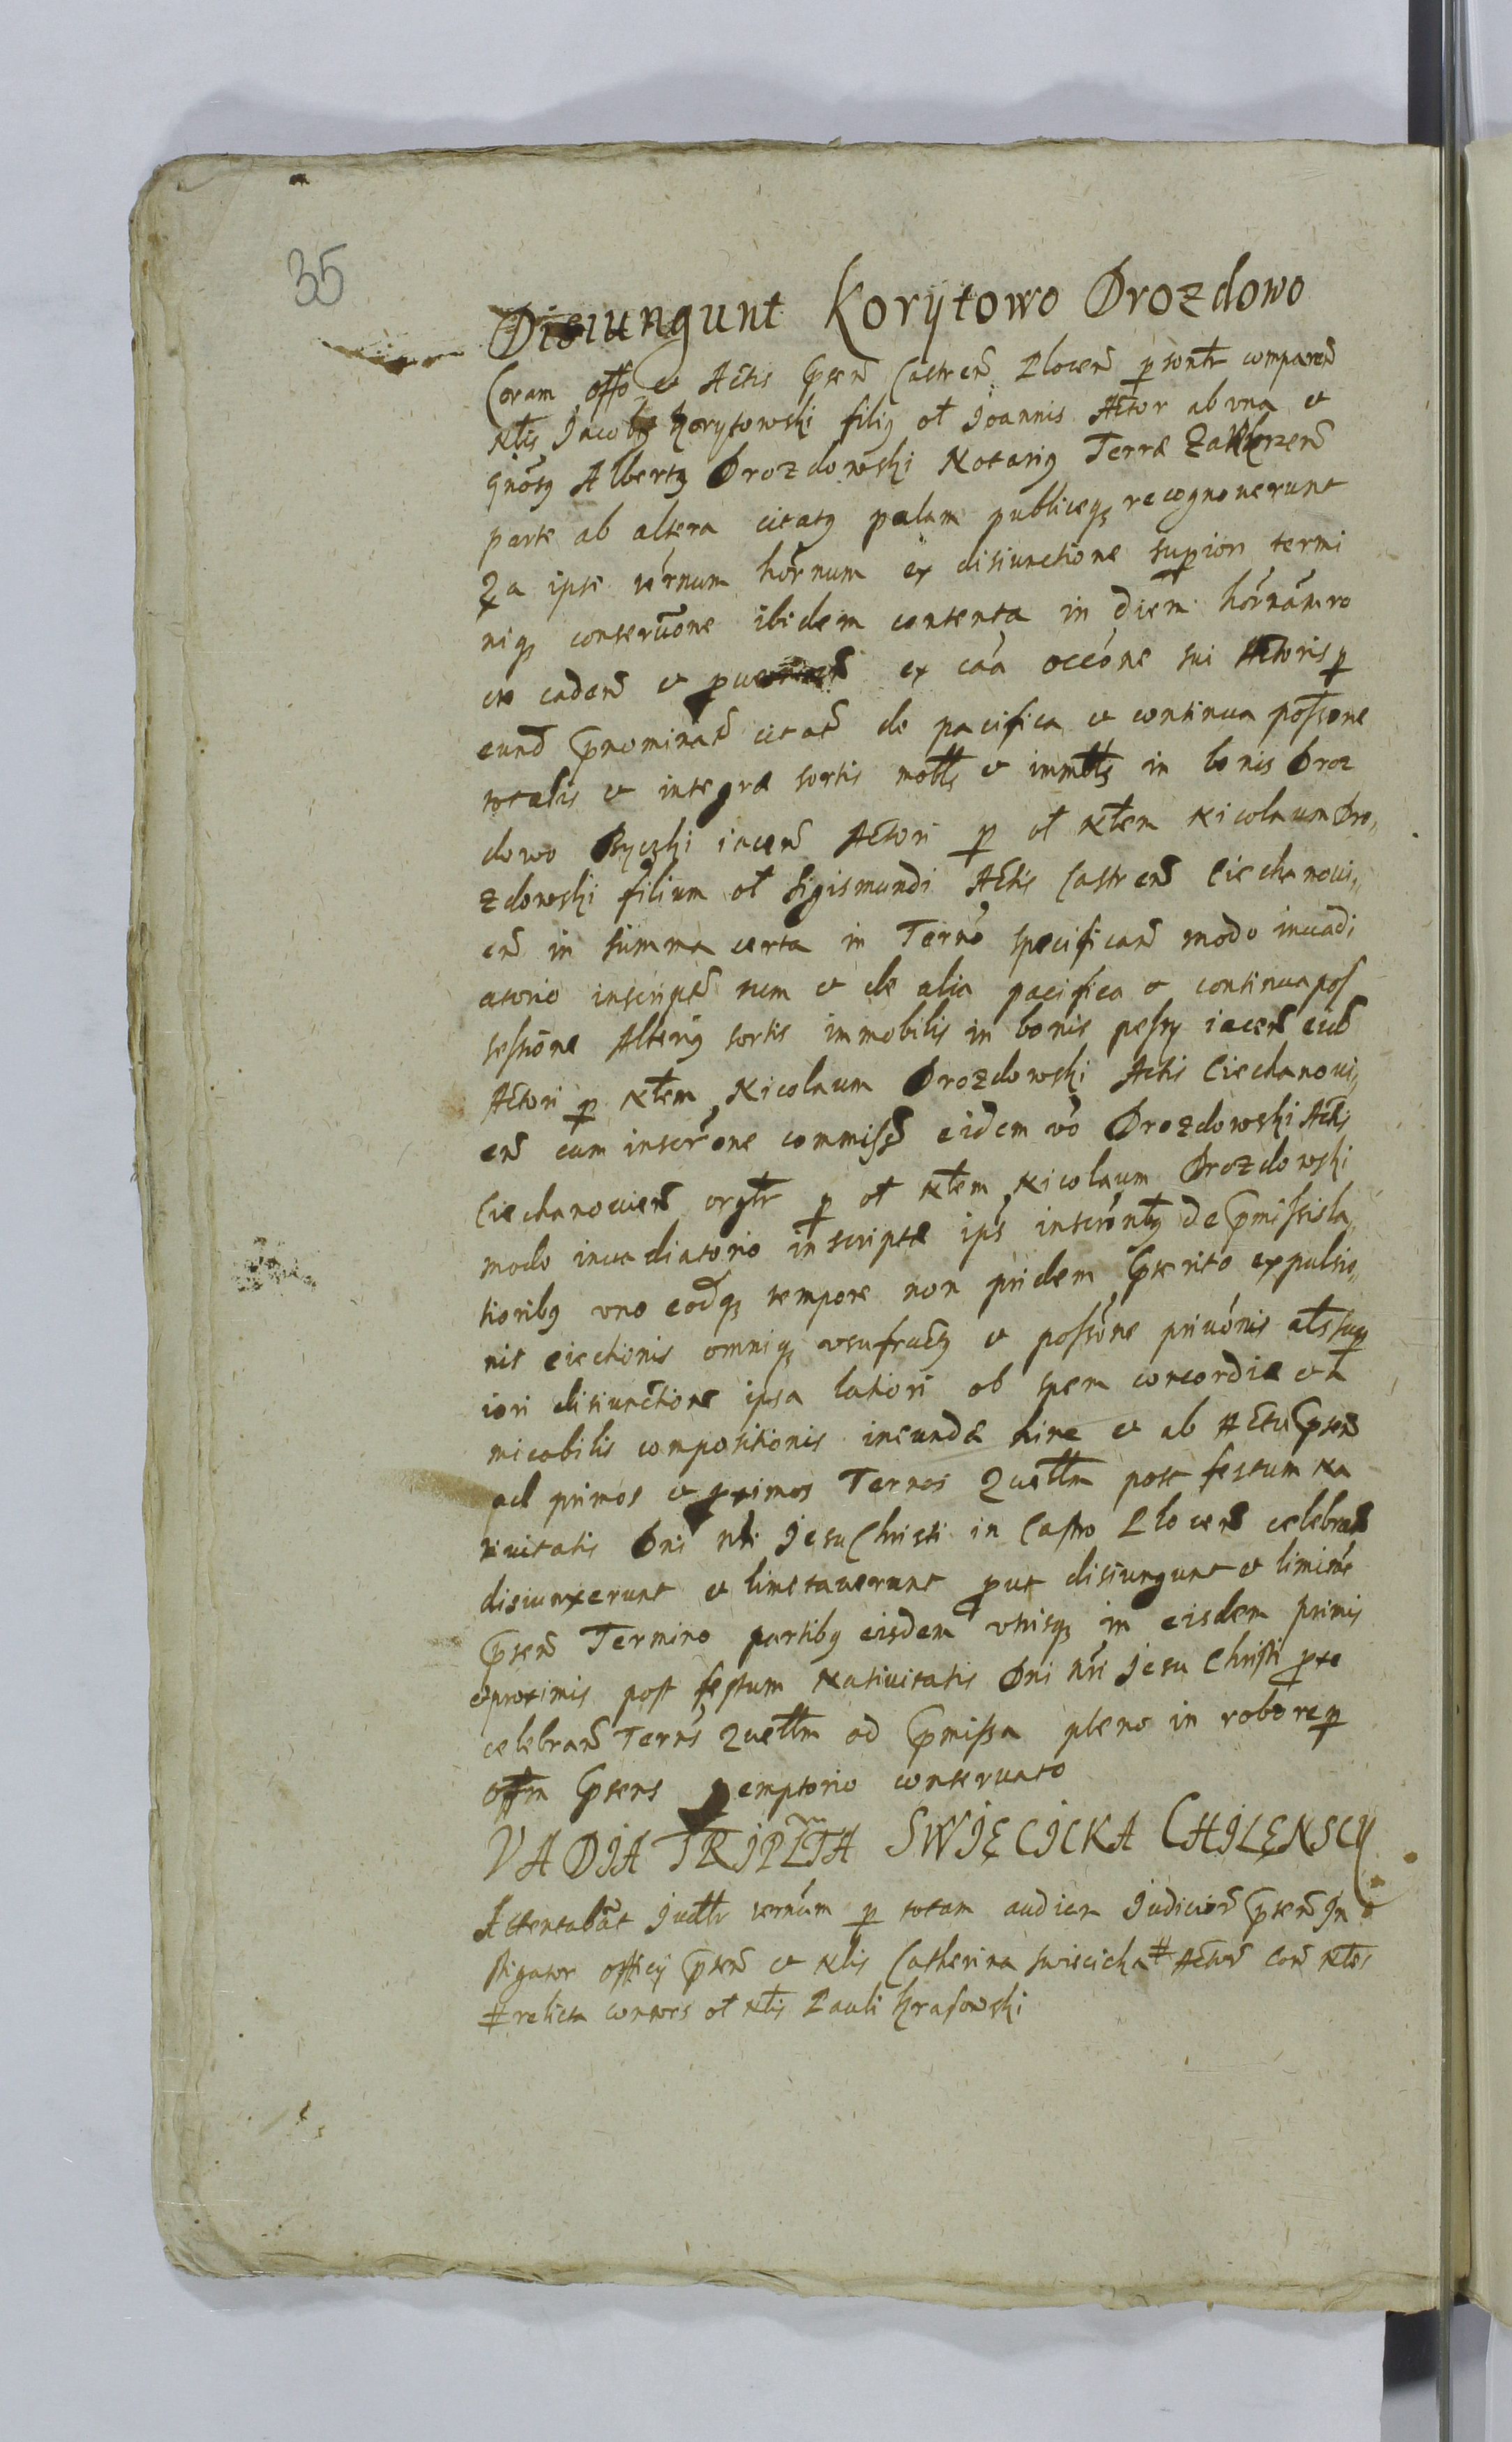 35
Disiungunt Korÿtowo Drozdowo
Coram offo et Actis Cpsen Castren Plocen psonłr comparen
Nłis Jacobus Korytowski filius oł Joannis Actor ab vna et
Gnosus Albertus Drozdowski Notarius Terræ Zakrzen
parte ab altera citatus palam publiceqȝ recognouerunt
Qa ipse ternum hornum ex disiunctione superiori termi
niqȝ conseruone ibidem contenta in diem hornam ro
cte caden et ex caa occone sui Actoris p
eund pnominat citat de pacifica et continua possone
totalis et integræ sortis mobłs et immbłs in bonis Droz
dowo Byczki iacen Actori p oł Nłem Nicolaum Dro,,
zdowski filium oł Sigismundi Actis Castren Ciechanoui,,
en in summa certa in Terno specifican modo inuadi
atorio inscript tum et de alia pacifica et continua pos
sessione Alterius sortis immobilis in bonis pestis iacen eid
Actori p Nłem Nicolaum Drozdowski Actis Ciechanoui,,
en cum inscrone commiss eidem vo Drozdowski Actis
Ciechanouien p oł Nłem Nicolaum Drozdowski
modo inuadiatorio inscriptæ ips inscronbus de pmissis la,,
tioribus vno eodqȝ tempore non pridem pterito expulsio,,
nis eiectionis omniqȝ vsufructus et possone priuonis ałs sup
iori disiunctione ipsa latiori ob spem concordiæ et a
micabilis compositionis ineundæ hinc et ab Actu psen
ad primos et primos Ternos Querłłm post festum Na
tiuitatis Dni nri Jesu Christi in Castro Plocen celebran
disiunxerunt et limitauerunt put disiungunt et limitant
psen Termino partibus eisdem vtrisqȝ in eisdem primis
et proximis post festum Natiuitatis Dni nri Jesu Christi pxe
celebran Ternis Querłłm ad pmissa pleno in robore p
offm psens pemptorio conseruato
VADIA TRIPLTA SWIĘCICKA CHILENSCY
Attentabat Judłr ternum p totam audien Judicior psen In
stigator officÿ psen et Nlis Catherina Swiecicka # Actores Con Nłes
# relicta consors oł Nłis Pauli Krasowski